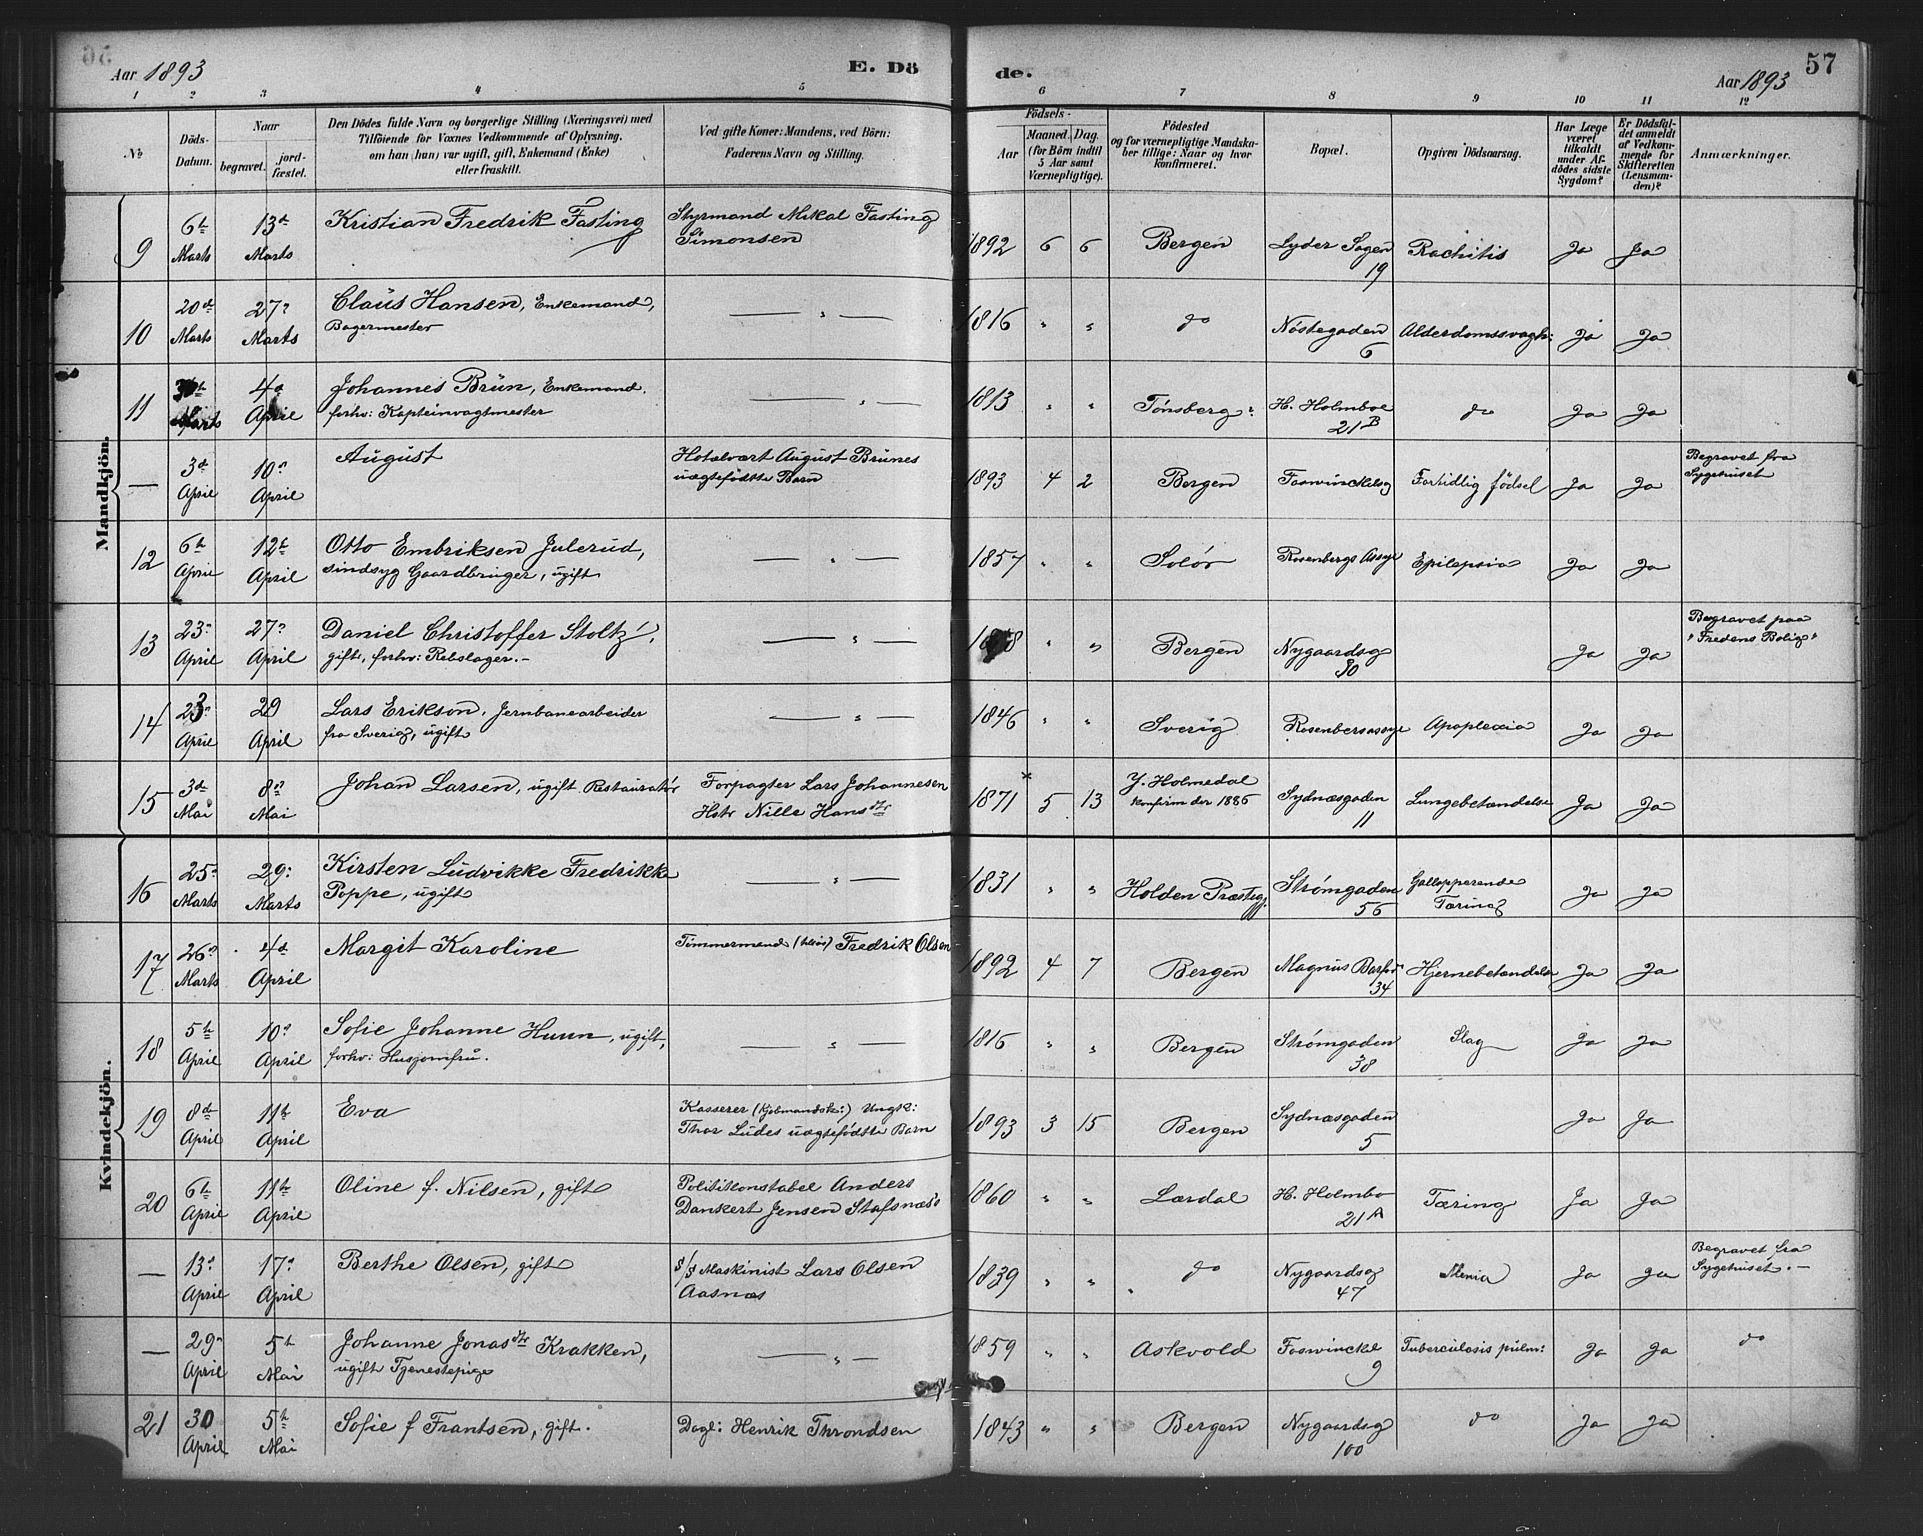 Aar 1893
E. Dö
de.
Aar 1893
57
1 2 3 4 5 6 7 8 9 10 11 12
№
Döds-
Datum.
Naar
begravet.
jord-
fæstet.
Den Dödes fulde Navn og borgerlige Stilling (Næringsvei) med
Tilföiende for Voxnes Vedkommende af Oplysning,
om han (hun) var ugift, gift, Enkemand (Enke)
eller fraskilt.
Ved gifte Koner: Mandens, ved Börn:
Faderens Navn og Stilling.
Födsels-
Aar
Maaned. Dag.
(for Börn indtil
5 Aar samt
Værnepligtige).
Födested
og for værnepligtige Mandska-
ber tillige: Naar og hvor
konfirmeret.
Bopæl.
Opgiven Dödsaarsag.
Har Læge
været
tilkaldt
under Af-
dödes sidste
Sygdom?
Er Dödsfal-
det anmeldt
af Vedkom-
mende for
Skifteretten
(Lensman-
den)?
Anmærkninger.
Mandkjön.
9 6te Marts 13de Marts Kristian Fredrik Fasting Styrmand Mikal Fasting
Simonsen 1892 6 6 Bergen Lyder Sagen
19 Rachitis Ja Ja
10 20de Marts 27? Marts Claus Hansen, Enkemand,
Bagermester — " — 1816 " " do Nöstegaden
6 Alderdomssvagh: Ja Ja
11 Marts 4de April Johannes Brün, Enkemand.
forhv: Kapteinvagtmester — " — 1813 " " Tönsberg H. Holmboe
21B do Ja Ja
— 3de April 10? April August Hotelvært August Brünes
uægtefödte Barn 1893 4 2 Bergen Foswinckelsg Fortidlig födsel Ja Ja Begravet fra
Sygehuset
12 6te April 12te April Otto Embriksen Julerud,
sindsyg Gaardbruger, ugift — " — 1857 " " Solör Rosenbergs Assyl Epilepsia Ja Ja
13 23? April 27? April Daniel Christoffer Stoltz,
gift, forhv: Rebslager.- — " — " " Bergen Nygaardsg
90 Ja Ja Begravet paa
"Fredens Bolig"
14 23? April 29 April Lars Erikson, Jernbanearbeider
fra Sverig, ugift — " — 1846 " " Sverig Rosenbersassyl Apoplexia Ja Ja
15 3de Mai 8? Mai Johan Larsen, ugift Restauratör Forpagter Lars Johannesen
Hstr Nille Hansdtr 1871 5 13 Y. Holmedal
konfirm der 1886 Sydnæsgaden
11 Lungebetændelse Ja Ja
Kvindekjön.
16 25? Marts 29: Marts Kirsten Ludvikke Fredrikke
Poppe, ugift — " — 1831 " " Holden Præstegj. Strømgaden
56 Gallopperende
Tæring Ja Ja
17 26? Marts 4de April Margit Karoline Tömmermand Fredrik Olsen 1892 4 7 Bergen Magnus Barfod
34 Hjernebetændelse Ja Ja
18 5te April 10? April Sofie Johanne Huun, ugift,
forhv: Husjomfru. — " — 1816 " " Bergen Strømgaden
38 Slag Ja Ja
19 8de April 11te April Eva Kasserer (Kjöbmandsk:) Ungk:
Thor Ludes uægtefödte Barn 1893 3 15 Bergen Sydnæsgaden
5 Ja Ja
20 6te April 11te April Oline f. Nilsen, gift Politikonstabel Anders
Dankert Jensen Stafsnæs's 1860 " " Lærdal H. Holmbo
21A Tæring Ja Ja
— 13? April 17? April Berthe Olsen, gift S/S Maskinist Lars Olsen
Aasnæs 1839 " " do Nygaardsg
47 Ja Ja Begravet fra
Sygehuset.-
— 29? April 5te Mai Johanne Jonasdtr Krakken,
ugift Tjenestepige — " — 1859 " " Askvold Foswinckl
9 Tuberculosis pulm: Ja Ja do
21 30 April 5te Mai Sofie f Frantsen, gift. Dagl: Henrik Throndsen 1843 " " Bergen Nygaardsg
100 do Ja Ja